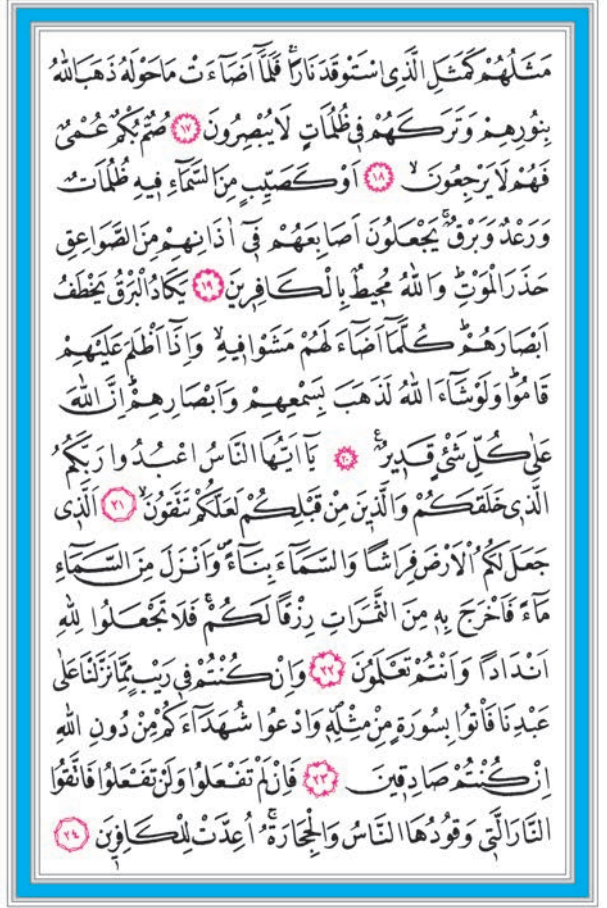 مَثَلُهُمْ كَمَثَلِ الَّذِى اسْتَوْقَدَ نَارًاۚ فَلَمَّٓا اَضَٓاءَتْ مَا حَوْلَهُ ذَهَبَ اللّٰهُ
بِنُورِهِمْ وَتَرَكَهُمْ فِى ظُلُمَاتٍ لَا يُبْصِرُونَ ﴿١٧﴾ صُمٌّ بُكْمٌ عُمْىٌ
فَهُمْ لَا يَرْجِعُونَۙ ﴿١٨﴾ اَوْ كَصَيِّبٍ مِنَ السَّمَٓاءِ فِيهِ ظُلُمَاتٌ
وَرَعْدٌ وَبَرْقٌۚ يَجْعَلُونَ اَصَابِعَهُمْ فِٓى اٰذَانِهِمْ مِنَ الصَّوَاعِقِ
حَذَرَ الْمَوْتِۜ وَاللّٰهُ مُحِيطٌ بِالْكَافِرِينَ ﴿١٩﴾ يَكَادُ الْبَرْقُ يَخْطَفُ
اَبْصَارَهُمْۜ كُلَّمَٓا اَضَٓاءَ لَهُمْ مَشَوْا فِيهِۙ وَاِذَٓا اَظْلَمَ عَلَيْهِمْ
قَامُواۜ وَلَوْ شَٓاءَ اللّٰهُ لَذَهَبَ بِسَمْعِهِمْ وَاَبْصَارِهِمْۜ اِنَّ اللّٰهَ
عَلٰى كُلِّ شَىْءٍ قَدِيرٌ۟ ﴿٢٠﴾ يَٓا اَيُّهَا النَّاسُ اعْبُدُوا رَبَّكُمُ
الَّذِى خَلَقَكُمْ وَالَّذِينَ مِنْ قَبْلِكُمْ لَعَلَّكُمْ تَتَّقُونَۙ ﴿٢١﴾ اَلَّذِى
جَعَلَ لَكُمُ الْاَرْضَ فِرَاشًا وَالسَّمَٓاءَ بِنَٓاءًۖ وَاَنْزَلَ مِنَ السَّمَٓاءِ
مَٓاءً فَاَخْرَجَ بِهِ مِنَ الثَّمَرَاتِ رِزْقًا لَكُمْۚ فَلَا تَجْعَلُوا لِلّٰهِ
اَنْدَادًا وَاَنْتُمْ تَعْلَمُونَ ﴿٢٢﴾ وَاِنْ كُنْتُمْ فِى رَيْبٍ مِمَّا نَزَّلْنَا عَلٰى
عَبْدِنَا فَأْتُوا بِسُورَةٍ مِنْ مِثْلِهِۖ وَادْعُوا شُهَدَٓاءَكُمْ مِنْ دُونِ اللّٰهِ
اِنْ كُنْتُمْ صَادِقِينَ ﴿٢٣﴾ فَاِنْ لَمْ تَفْعَلُوا وَلَنْ تَفْعَلُوا فَاتَّقُوا
النَّارَ الَّتِى وَقُودُهَا النَّاسُ وَالْحِجَارَةُۚ اُعِدَّتْ لِلْكَافِرِينَ ﴿٢٤﴾